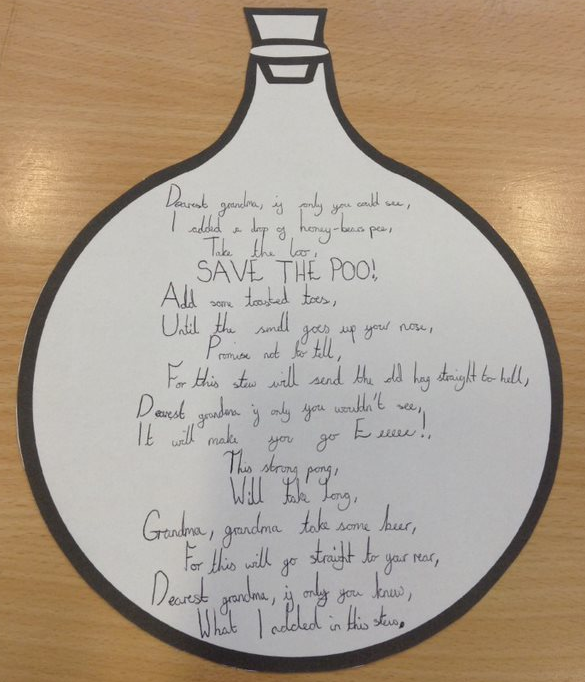 Dearest grandma, if only you could see,
I added a drop of honey-bears pee,
Take the loo,
SAVE THE POO!,
Add some toasted toes,
Until the smell goes up your nose,
Promise not to tell,
For this stew will send the old hag straight to hell,
Dearest grandma if only you wouldn't see,
It will make you go Eeeeee!,
This strong pong,
Will take long,
Grandma, grandma take some beer,
For this will go straight to your rear,
Dearest grandma, if only you knew,
What I added in this stew.